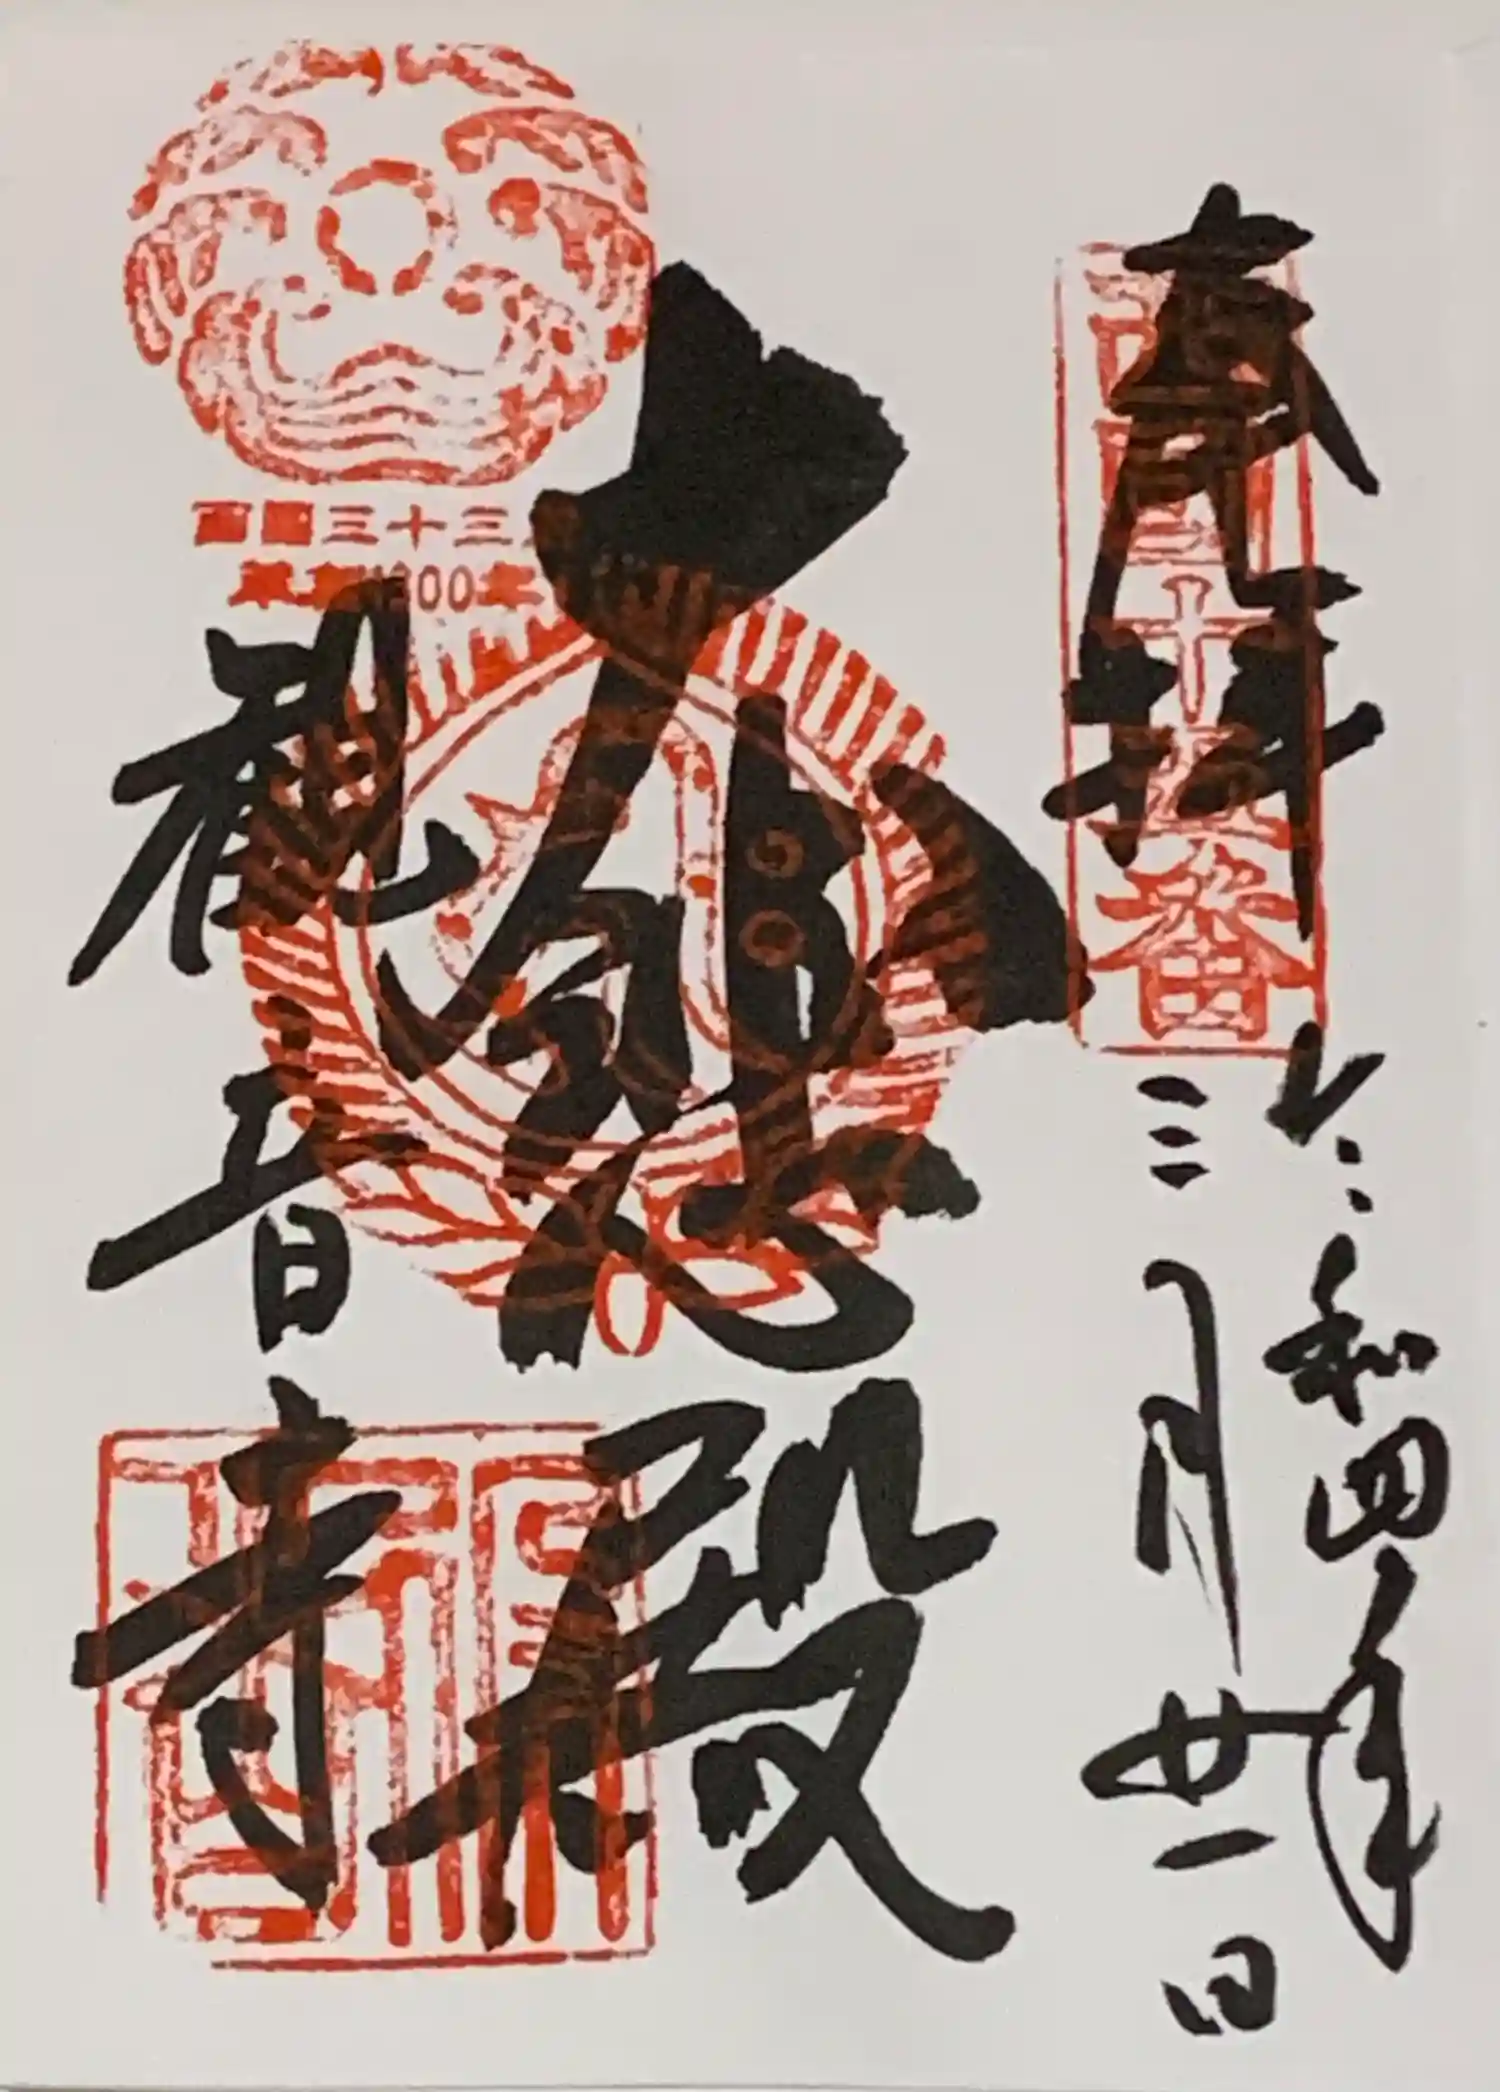 奉拝
西国十五番
令和四年
三月廿一日
大悲殿
西国三十三
草創1300年
觀音寺